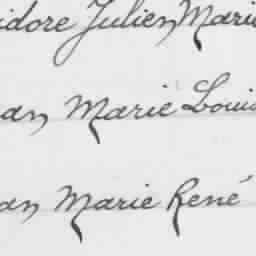 idore Julien Marie
an Marie Louis
an Marie René